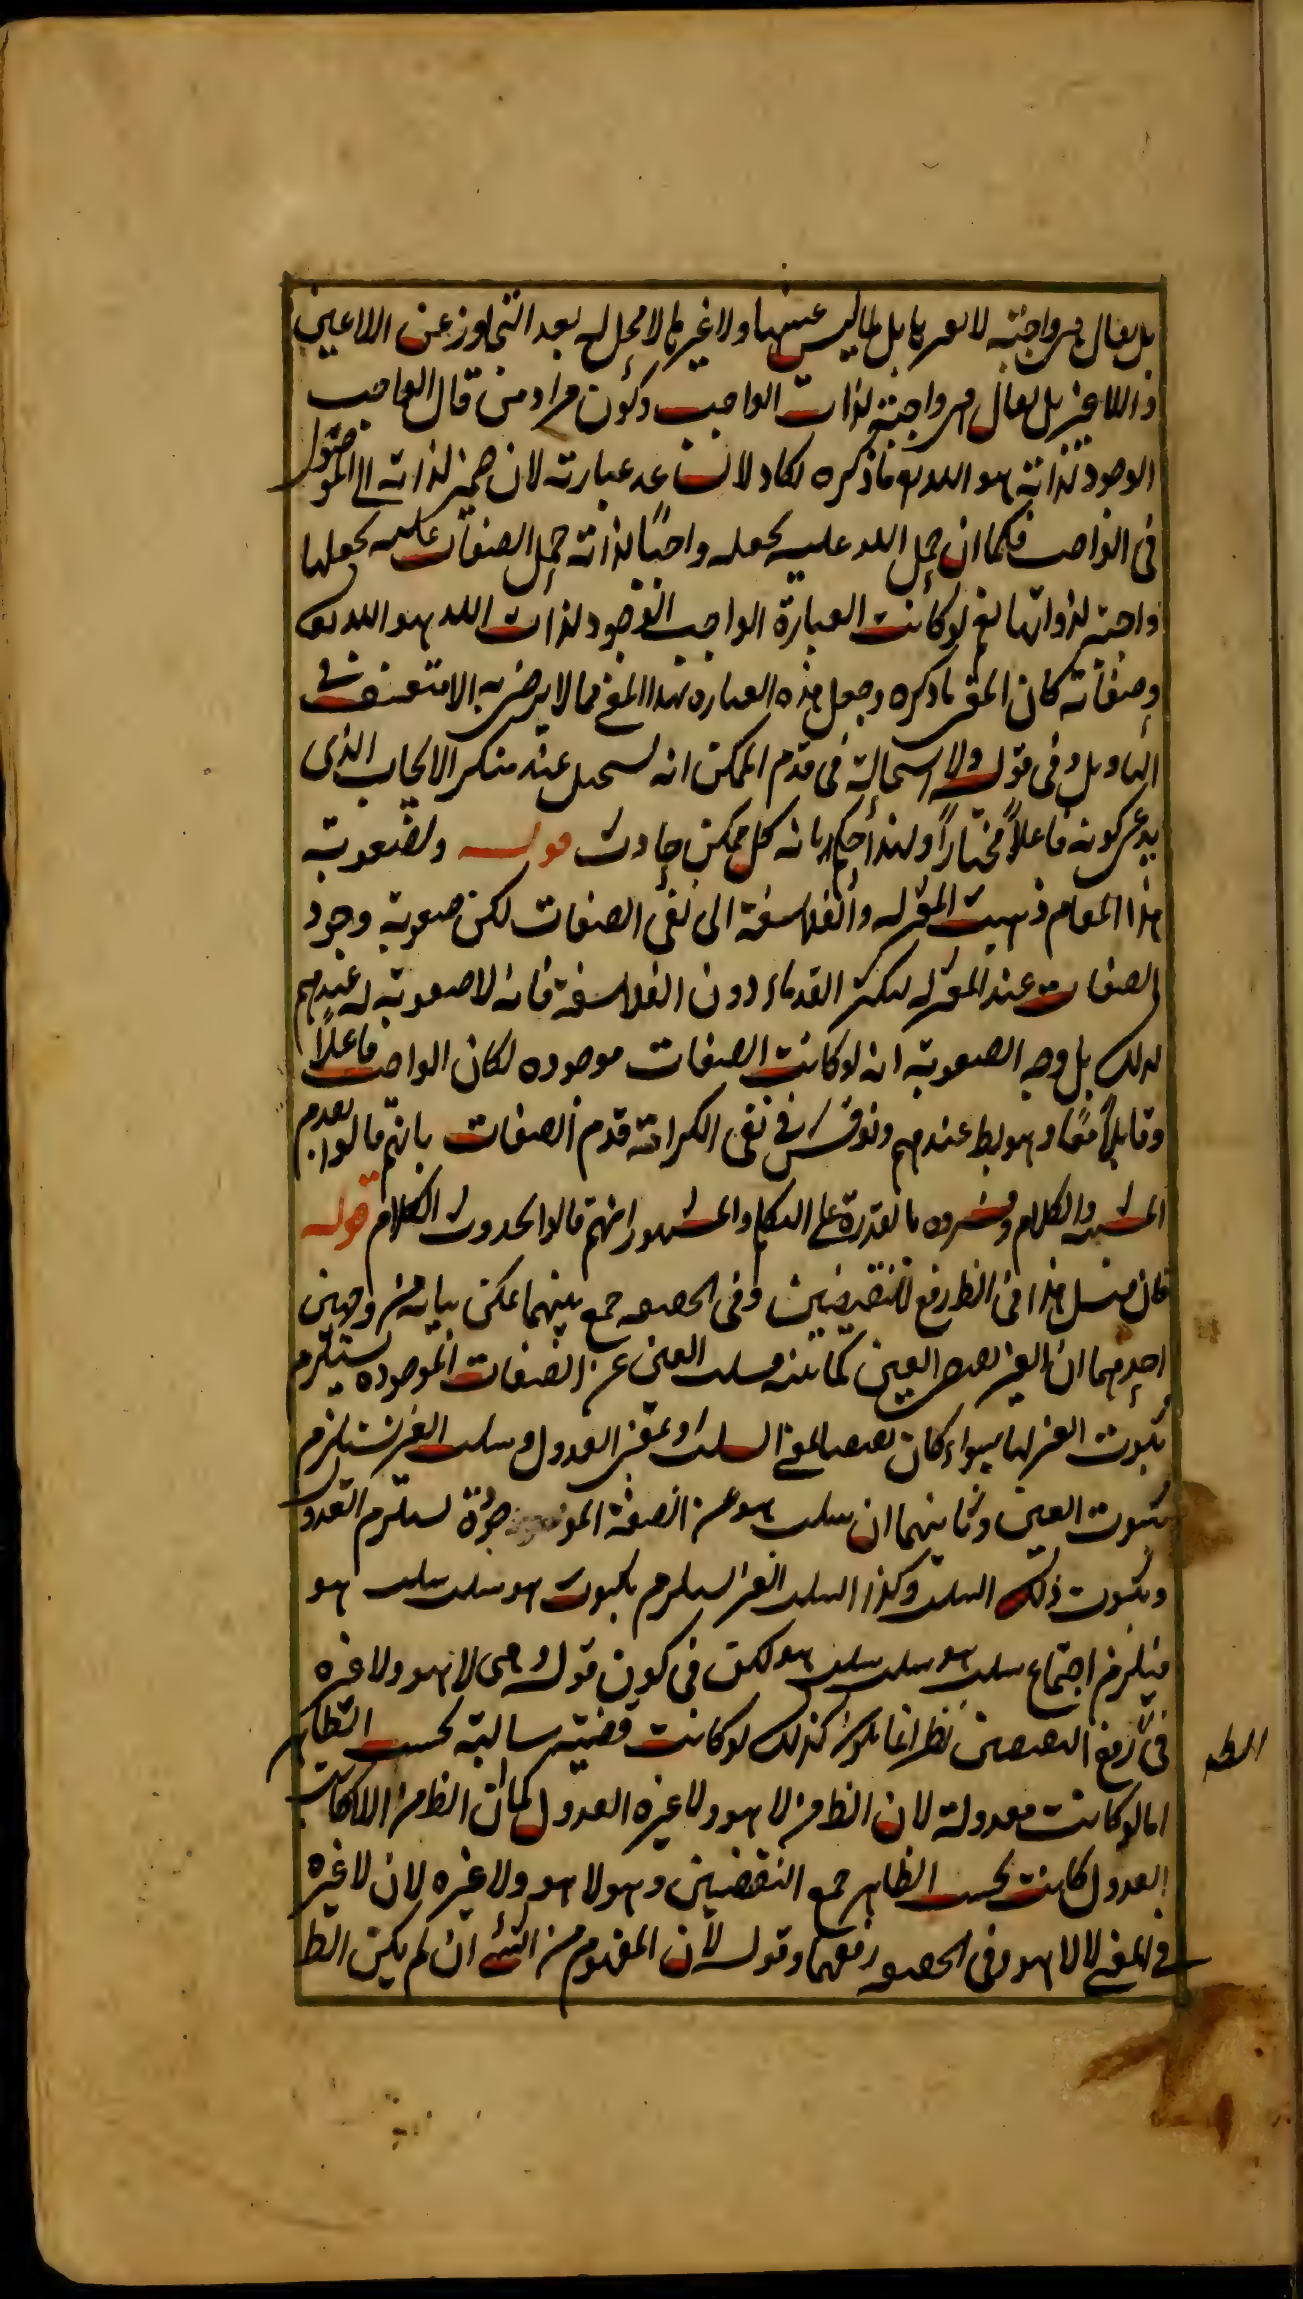 بل يقال هي واجبة لا لغيرها بل لما ليس عينها ولا غيرها لا محل له بعد التجاوز عن اللاعين
واللاغير بل يقال هي واجبة لذات الواجب وكون مراد من قال الواجب
الوجود لذاته هو الله تع ما ذكره لكاد لا عبارته لان ضمير لذاته الى الموصول
فى الواجب فكما ان حمل الله عليه يجعله واجبًا لذاته حمل الصفات عليه يجعلها
واجبة لذواتها نعم لو كانت العبارة الواجب الوجود لذات الله هو الله تع
وصفاته كان المعنى ما ذكره وجعل هذه العبارة بهذا المعنى مما لا يرضى به الا متعسف فى
التاويل وفى قوله ولا استحالة فى قدم الممكن انه يستحيل عند منكر الايجاب الذى
يدعى كونه فاعلاً مختاراً ولهذا حكم بانه كل ممكن حادث قوله ولصعوبة
هذا المقام ذهبت المعتزله والفلاسفة الى نفى الصفات لكن صعوبة وجود
الصفات عند المعتزله لتكثر القدماء دون الفلاسفة فانه لا صعوبة له عندهم
لذلك بل وجه الصعوبة انه لو كانت الصفات موجوده لكان الواجب فاعلاً
وقابلاً معًا وهو بط عندهم ونوقش فى نفى الكرامة قدم الصفات بانهم قالوا بقدم
المشيه والكلام وفسروه بالقدرة على التكلم والمشهور انهم قالوا بحدوث الكلام قوله
فان قيل هذا فى الظ رفع للنقيضين وفى الحقيقه جمع بينهما يمكن بيانه من وجهين
احدهما ان الغير نقيض العين كما بينه فسلب العين عن الصفات الموجوده يستلزم
ثبوت الغير لها سواء كان نقيضا بمعنى السلب او بمعنى العدول وسلب الغير يستلزم
ثبوت العين وثانيهما ان سلب هو عن الصفة الموجودة يستلزم العدول
وثبوت ذلك السلب وكذا السلب الغير يستلزم ثبوت هو سلب سلب هو
فيلزم اجتماع سلب هو سلب سلب هو لكن فى كون قوله وهى لا هو ولا غيره
فى رفع النقيضين نظر انما يكون كذلك لو كانت قضية سالبة بحسب الظاهر
اما لو كانت معدولة لان الظ من لا هو ولا غيره العدول كما ان الظ من اللاكاتب
العدول كانت بحسب الظاهر جمع النقيضين وهو لا هو ولا غيره لان لا غيره
فى المعنى لا لا هو وفى الحقيقه رفعهما وقوله لان المفهوم من الشئ ان لم يكن الظ